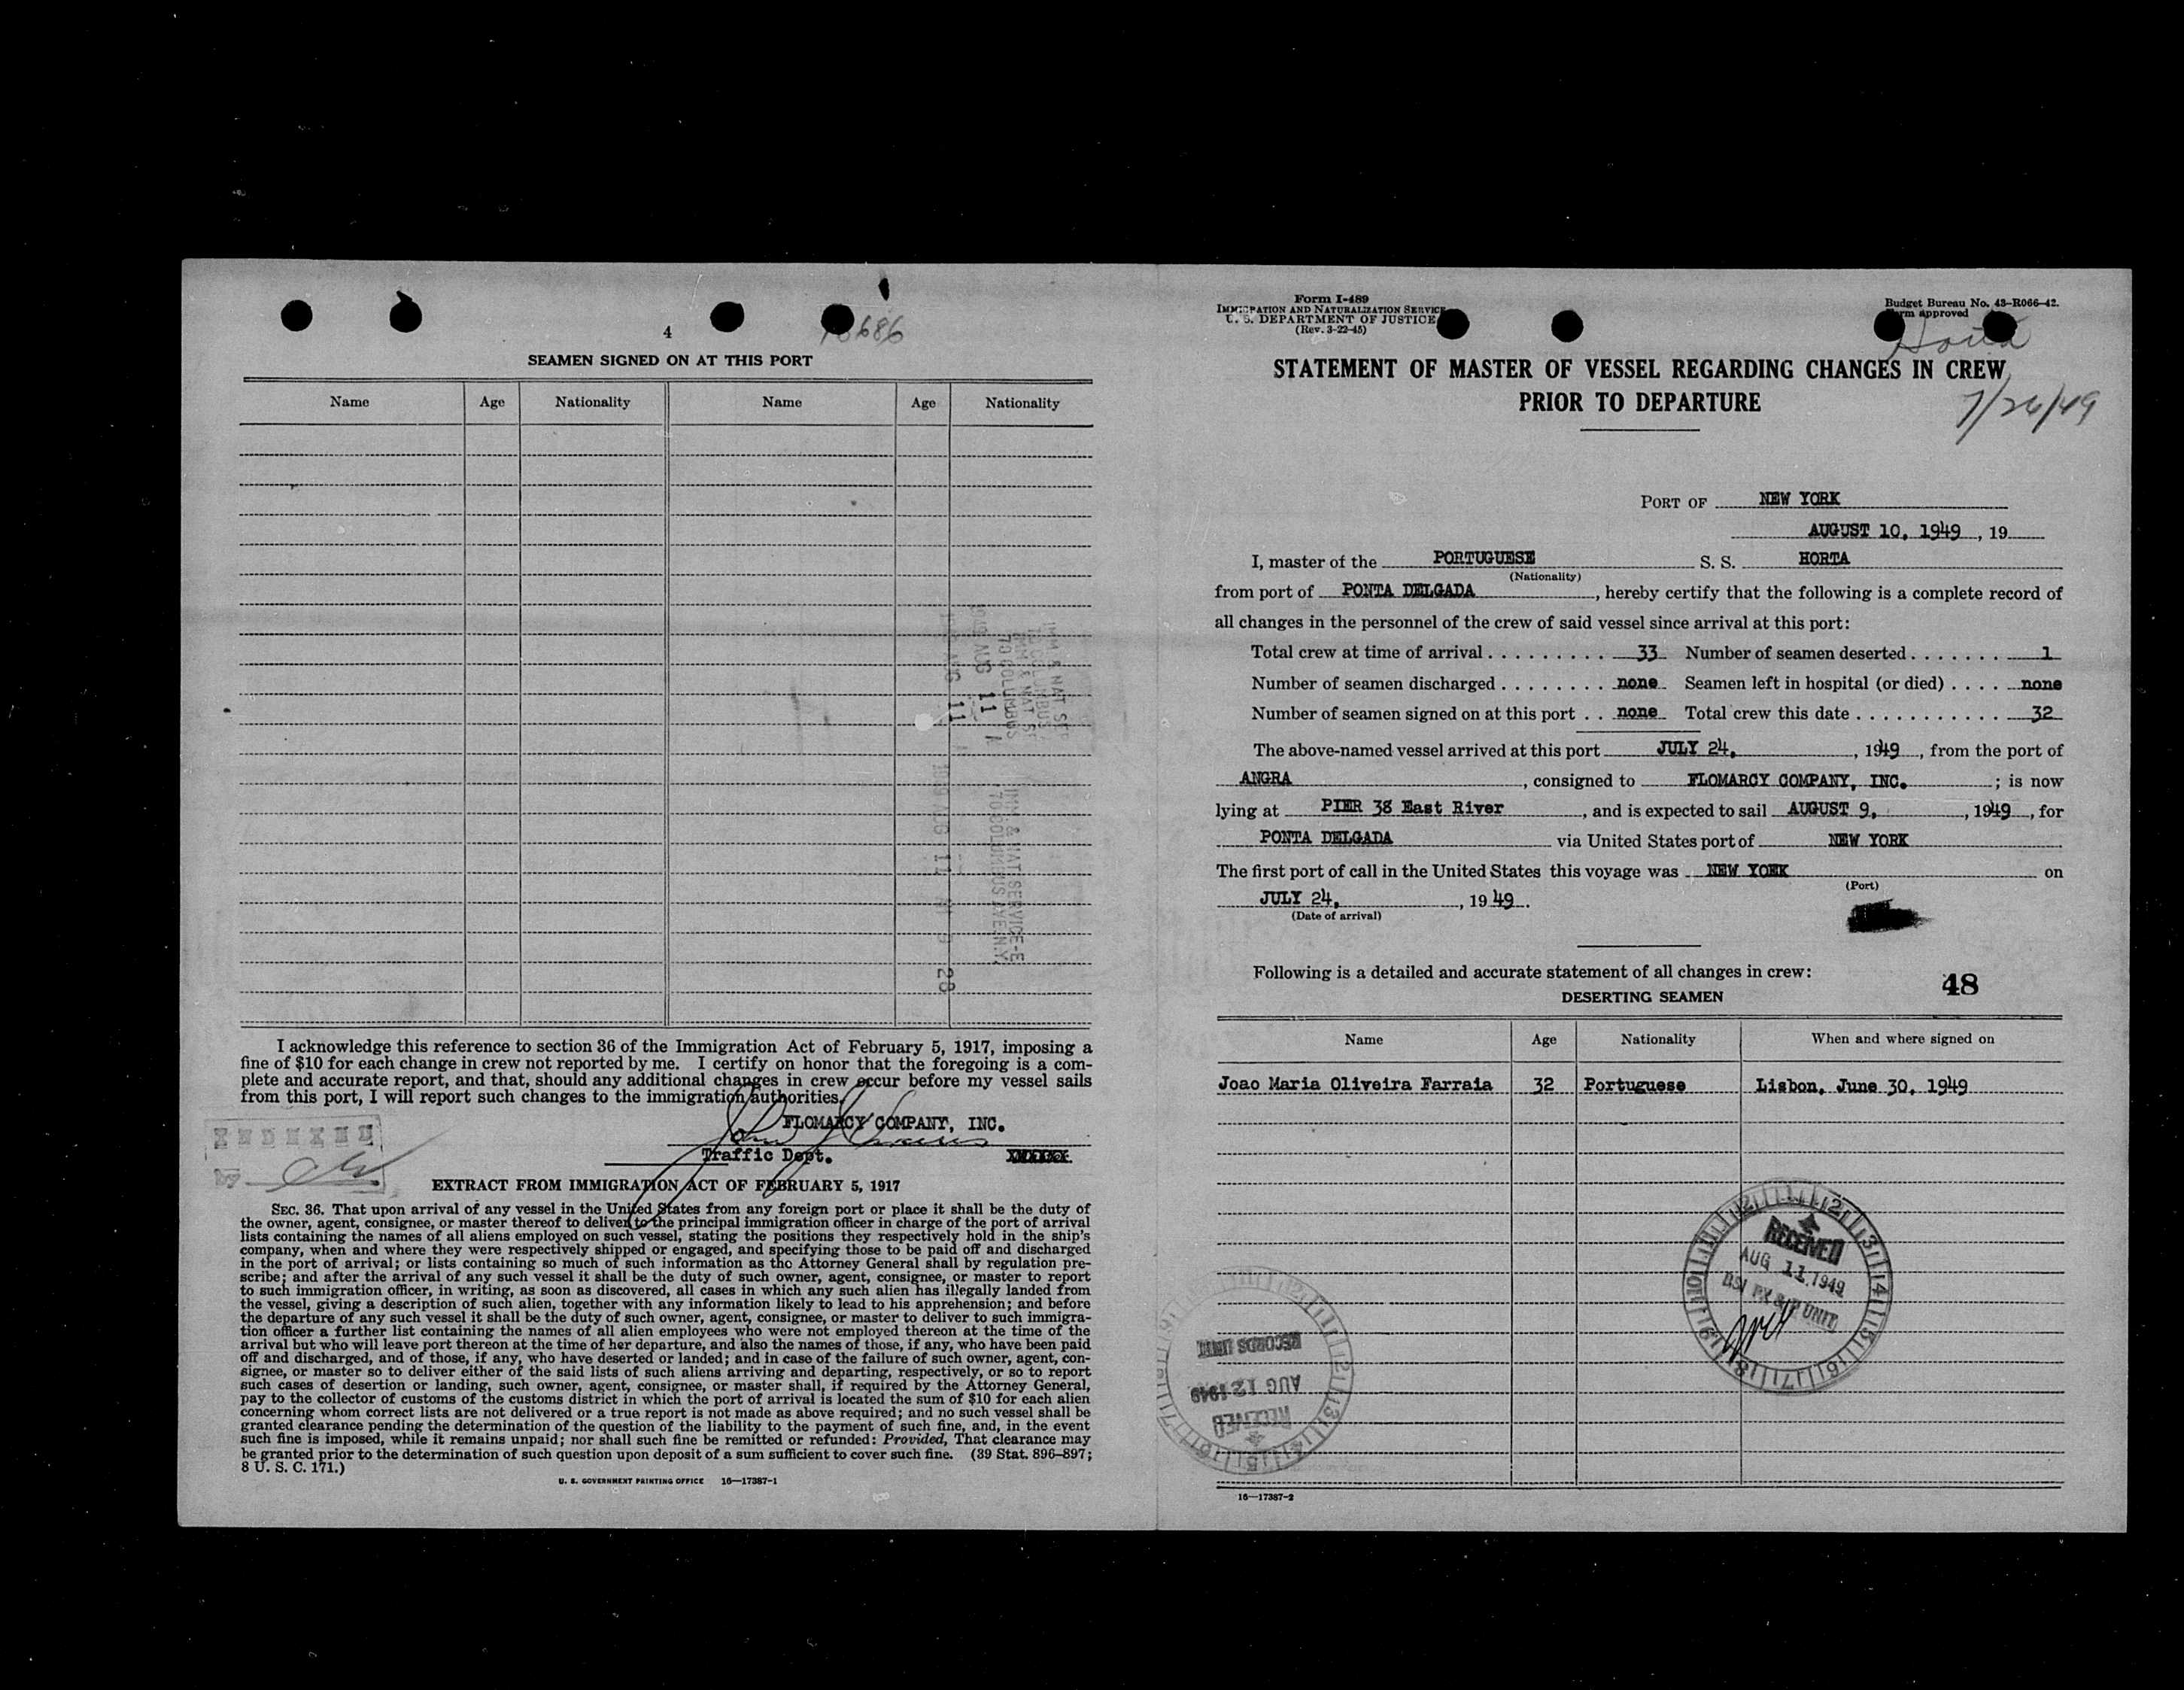 4
SEAMEN SIGNED ON AT THIS PORT
Name Age Nationality Name Age Nationality
I acknowledge this reference to section 36 of the Immigration Act of February 5, 1917, imposing a
fine of $10 for each change in crew not reported by me. I certify on honor that the foregoing is a com-
plete and accurate report, and that, should any additional changes in crew occur before my vessel sails
from this port, I will report such changes to the immigration authorities.
FLOMARCY COMPANY, INC.
Traffic Dept.
INDEXED
EXTRACT FROM IMMIGRATION ACT OF FEBRUARY 5, 1917
SEC. 36. That upon arrival of any vessel in the United States from any foreign port or place it shall be the duty of
the owner, agent, consignee, or master thereof to deliver to the principal immigration officer in charge of the port of arrival
lists containing the names of all aliens employed on such vessel, stating the positions they respectively hold in the ship's
company, when and where they were respectively shipped or engaged, and specifying those to be paid off and discharged
in the port of arrival; or lists containing so much of such information as the Attorney General shall by regulation pre-
scribe; and after the arrival of any such vessel it shall be the duty of such owner, agent, consignee, or master to report
to such immigration officer, in writing, as soon as discovered, all cases in which any such alien has illegally landed from
the vessel, giving a description of such alien, together with any information likely to lead to his apprehension; and before
the departure of any such vessel it shall be the duty of such owner, agent, consignee, or master to deliver to such immigra-
tion officer a further list containing the names of all alien employees who were not employed thereon at the time of the
arrival but who will leave port thereon at the time of her departure, and also the names of those, if any, who have been paid
off and discharged, and of those, if any, who have deserted or landed; and in case of the failure of such owner, agent, con-
signee, or master so to deliver either of the said lists of such aliens arriving and departing, respectively, or so to report
such cases of desertion or landing, such owner, agent, consignee, or master shall, if required by the Attorney General,
pay to the collector of customs of the customs district in which the port of arrival is located the sum of $10 for each alien
concerning whom correct lists are not delivered or a true report is not made as above required; and no such vessel shall be
granted clearance pending the determination of the question of the liability to the payment of such fine, and, in the event
such fine is imposed, while it remains unpaid; nor shall such fine be remitted or refunded: Provided, That clearance may
be granted prior to the determination of such question upon deposit of a sum sufficient to cover such fine. (39 Stat. 896–897;
8 U. S. C. 171.)
U. S. GOVERNMENT PRINTING OFFICE 16—17387-1
Form I-489
IMMIGRATION AND NATURALIZATION SERVICE
U. S. DEPARTMENT OF JUSTICE
(Rev. 3-22-45)
Budget Bureau No. 43-R066-42.
Form approved
Horta
7/24/49
STATEMENT OF MASTER OF VESSEL REGARDING CHANGES IN CREW
PRIOR TO DEPARTURE
PORT OF NEW YORK
AUGUST 10, 1949, 19
I, master of the PORTUGUESE S. S. HORTA
(Nationality)
from port of PONTA DELGADA, hereby certify that the following is a complete record of
all changes in the personnel of the crew of said vessel since arrival at this port:
Total crew at time of arrival 33 Number of seamen deserted 1
Number of seamen discharged none Seamen left in hospital (or died) none
Number of seamen signed on at this port none Total crew this date 32
The above-named vessel arrived at this port JULY 24, 1949, from the port of
ANGRA, consigned to FLOMARCY COMPANY, INC.; is now
lying at PIER 38 East River, and is expected to sail AUGUST 9, 1949, for
PONTA DELGADA via United States port of NEW YORK
The first port of call in the United States this voyage was NEW YORK on
(Port)
JULY 24, 1949.
(Date of arrival)
Following is a detailed and accurate statement of all changes in crew:
48
DESERTING SEAMEN
Name Age Nationality When and where signed on
Joao Maria Oliveira Farraia 32 Portuguese Lisbon, June 30, 1949
RECEIVED
AUG 11 1949
UNIT
RECORDS UNIT
AUG 12 1949
RECEIVED
16—17387-2